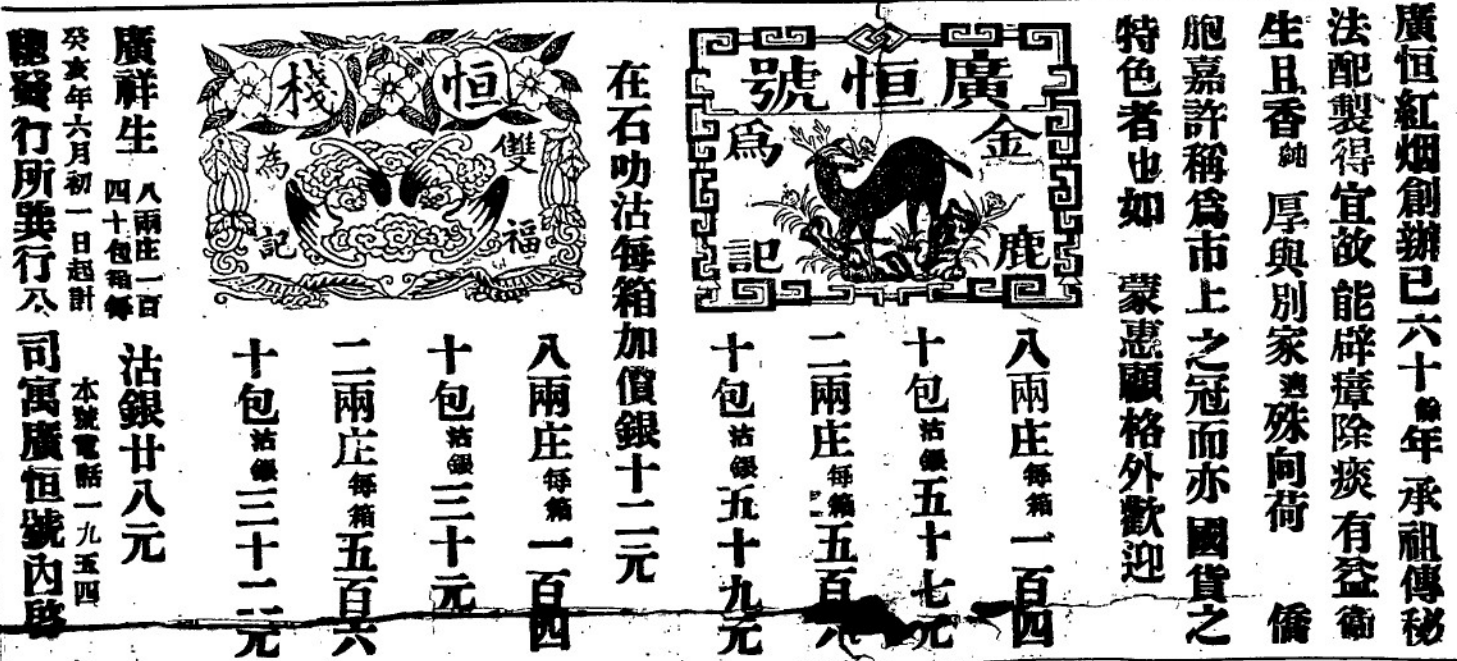 廣恒紅烟創辦已六十餘年承祖傳秘
法配製得宜故能辟瘴除痰有益衛
生且香純厚與別家逈殊向荷 僑
胞嘉許稱爲市上之冠而亦國貨之
特色者也如 蒙惠顧格外歡迎
廣恒號
金鹿
爲記
八兩庄每箱一百四
十包沽銀五十七元
二兩庄每箱五百六
十包沽銀五十九元
在石叻沽每箱加價銀十二元
恒棧
雙福
為記
八兩庄每箱一百四
十包沽銀三十元
二兩庄每箱五百六
十包沽銀三十二元
廣祥生 八兩庄一百四十包箱每 沽銀廿八元
癸亥年六月初一日起計 本號電話一九五四
總發行所巽行公司寓廣恒號內啓